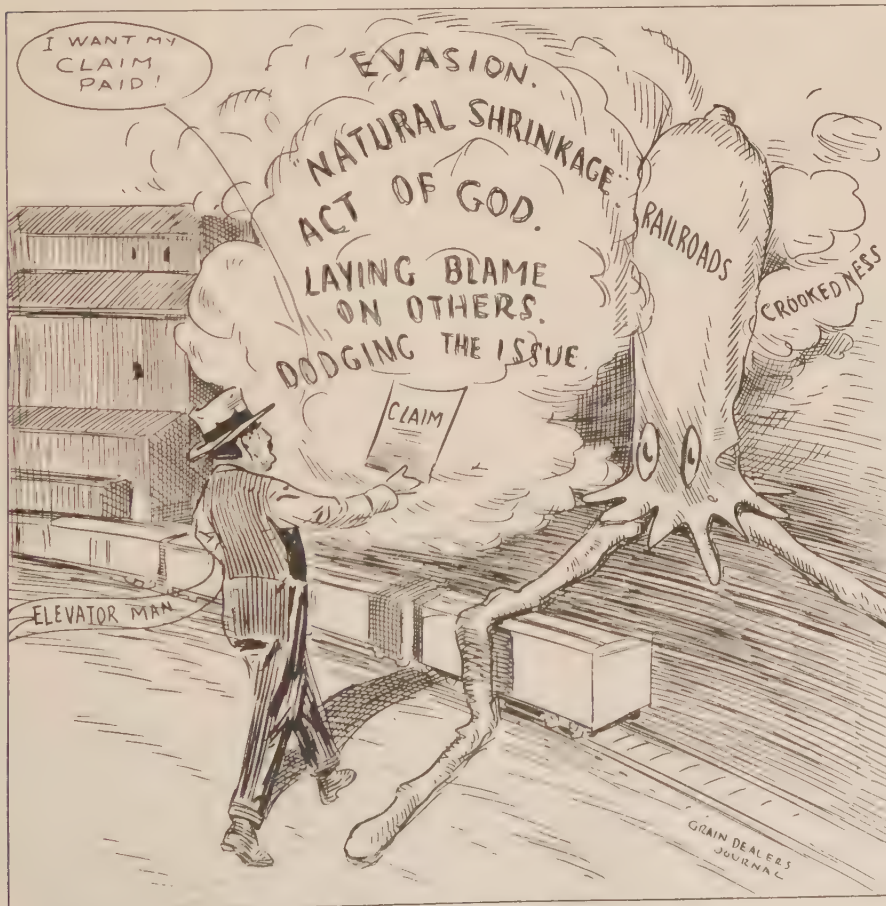 I WANT MY
CLAIM
PAID!
EVASION.
NATURAL SHRINKAGE
ACT OF GOD.
LAYING BLAME
ON OTHERS.
DODGING THE ISSUE.
RAILROADS
CROOKEDNESS
CLAIM
ELEVATOR MAN
GRAIN DEALERS
JOURNAL